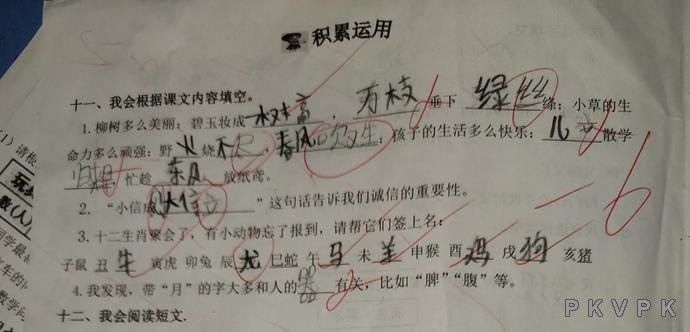 积累运用
十一、我会根据课文内容填空。
1.柳树多么美丽：碧玉妆成一树高，万枝垂下绿丝绦；小草的生
命力多么顽强：野火烧不尽，春风吹又生；孩子的生活多么快乐：儿童散学
归 忙趁东风放纸鸢。
2. “小信成 大信立”这句话告诉我们诚信的重要性。
3.十二生肖聚会了，有小动物忘了报到，请帮它们签上名：
子鼠 丑牛 寅虎 卯兔 辰龙 巳蛇 午马 未羊 申猴 酉鸡 戌狗 亥猪
4.我发现，带“月”的字大多和人的 有关，比如“脾”“腹”等。
十二、我会阅读短文.
PKVPK